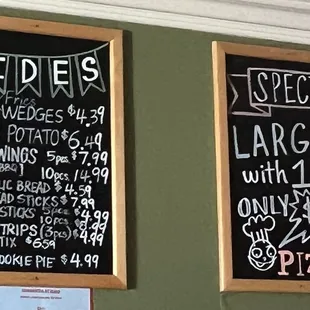 IDES
Fries
WEDGES $4.39
POTATO $6.49
WINGS 5pcs $7.99
BBQ] 10pcs 14.99
IC BREAD $4.59
AD STICKS $7.99
STICKS 5pcs $4.99
10pcs $8.99
TRIPS (3pcs) $4.99
TIX $6.59
OOKIE PIE $4.99
SPEC
LARG
with 1
ONLY $
PIZ